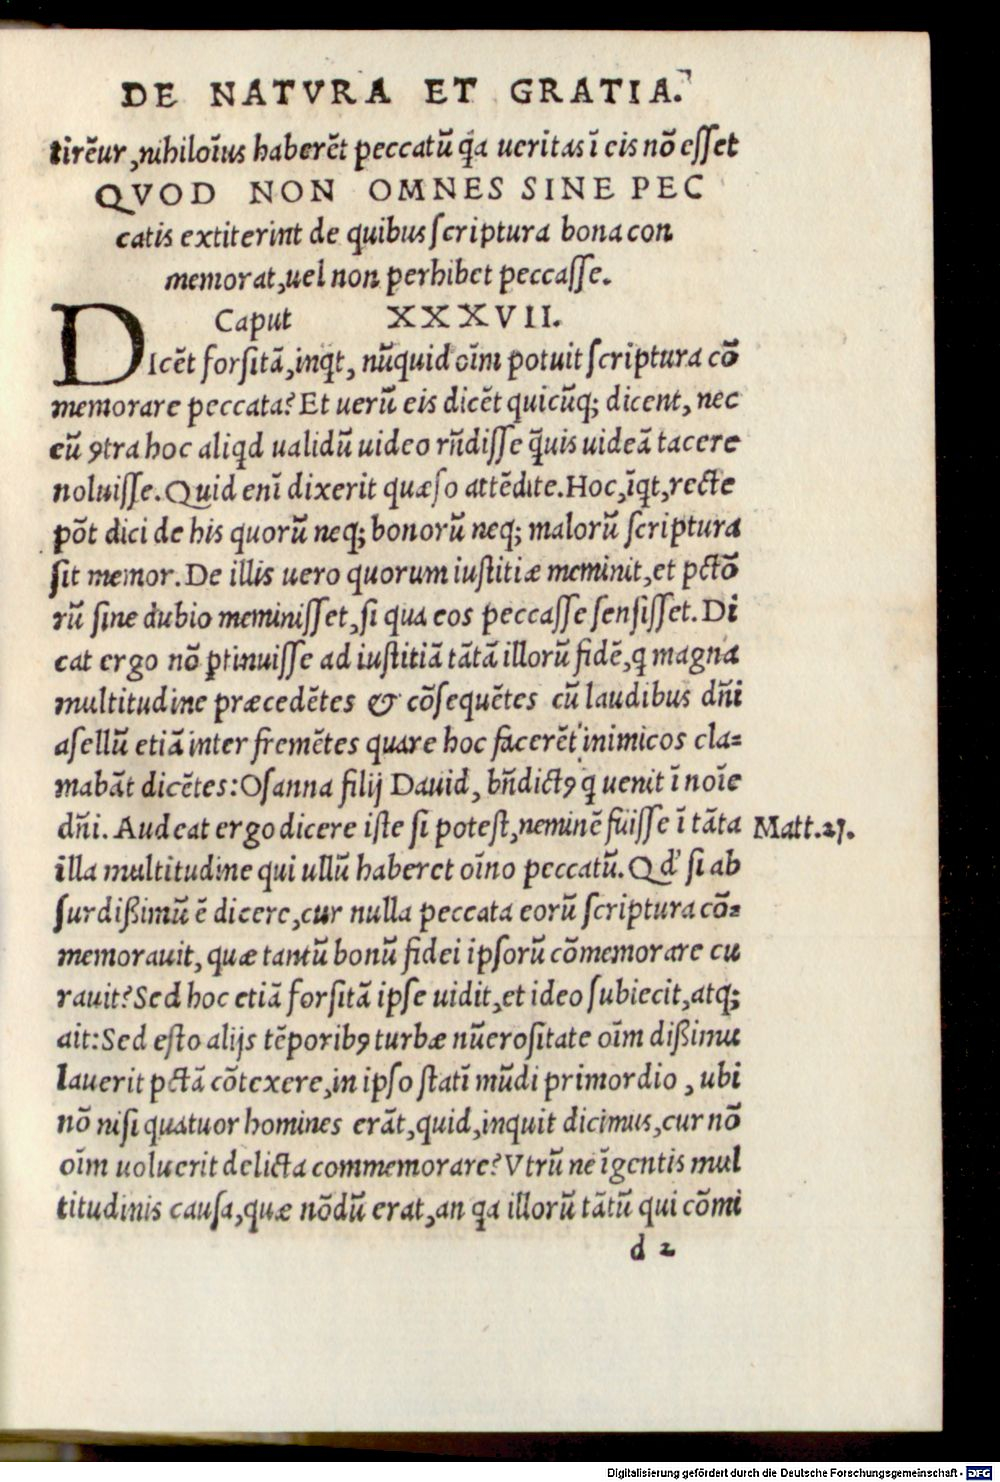 DE NATVRA ET GRATIA.
tirēur, nihiloīus haberēt peccatū ꝗa ueritas ī eis nō eſſet
QVOD NON OMNES SINE PEC
catis extiterint de quibus ſcriptura bona con
memorat, uel non perhibet peccaſſe.
Caput XXXVII.
DIcēt forſitā, inꝗt, nūquid oīm potuit ſcriptura cō
memorare peccata? Et uerū eis dicēt quicūq; dicent, nec
eū ꝯtra hoc aliꝗd ualidū uideo rñdiſſe ꝗ̄uis uideā tacere
noluiſſe. Quid enī dixerit quæſo attēdite. Hoc, īꝗt, recte
pōt dici de his quorū neq; bonorū neq; malorū ſcriptura
ſit memor. De illis uero quorum iuſtitiæ meminit, et pctō
rū ſine dubio meminiſſet, ſi qua eos peccaſſe ſenſiſſet. Di
cat ergo nō ꝑtinuiſſe ad iuſtitiā tātā illorū fidē, ꝗ magna
multitudine præcedētes & cōſequētes cū laudibus dñi
aſellū etiā inter fremētes quare hoc facerēt inimicos cla=
mabāt dicētes: Oſanna filij Dauid, bñdictꝯ ꝗ uenit ī noīe
dñi. Audeat ergo dicere iſte ſi poteſt, neminē fuiſſe ī tāta
Matt. 21.
illa multitudine qui ullū haberet oīno peccatū. Qd' ſi ab
ſurdißimū ē dicere, cur nulla peccata eorū ſcriptura cō=
memorauit, quæ tantū bonū fidei ipſorū cōmemorare cu
rauit? Sed hoc etiā forſitā ipſe uidit, et ideo ſubiecit, atq;
ait: Sed eſto alijs tēporibꝯ turbæ nūeroſitate oīm dißimu
lauerit pctā cōtexere, in ipſo ſtatī mūdi primordio, ubi
nō niſi quatuor homines erāt, quid, inquit dicimus, cur nō
oīm uoluerit delicta commemorare? Vtrū ne īgentis mul
titudinis cauſa, quæ nōdū erat, an ꝗa illorū tātū qui cōmi
d 2
Digitalisierung gefördert durch die Deutsche Forschungsgemeinschaft - DFG